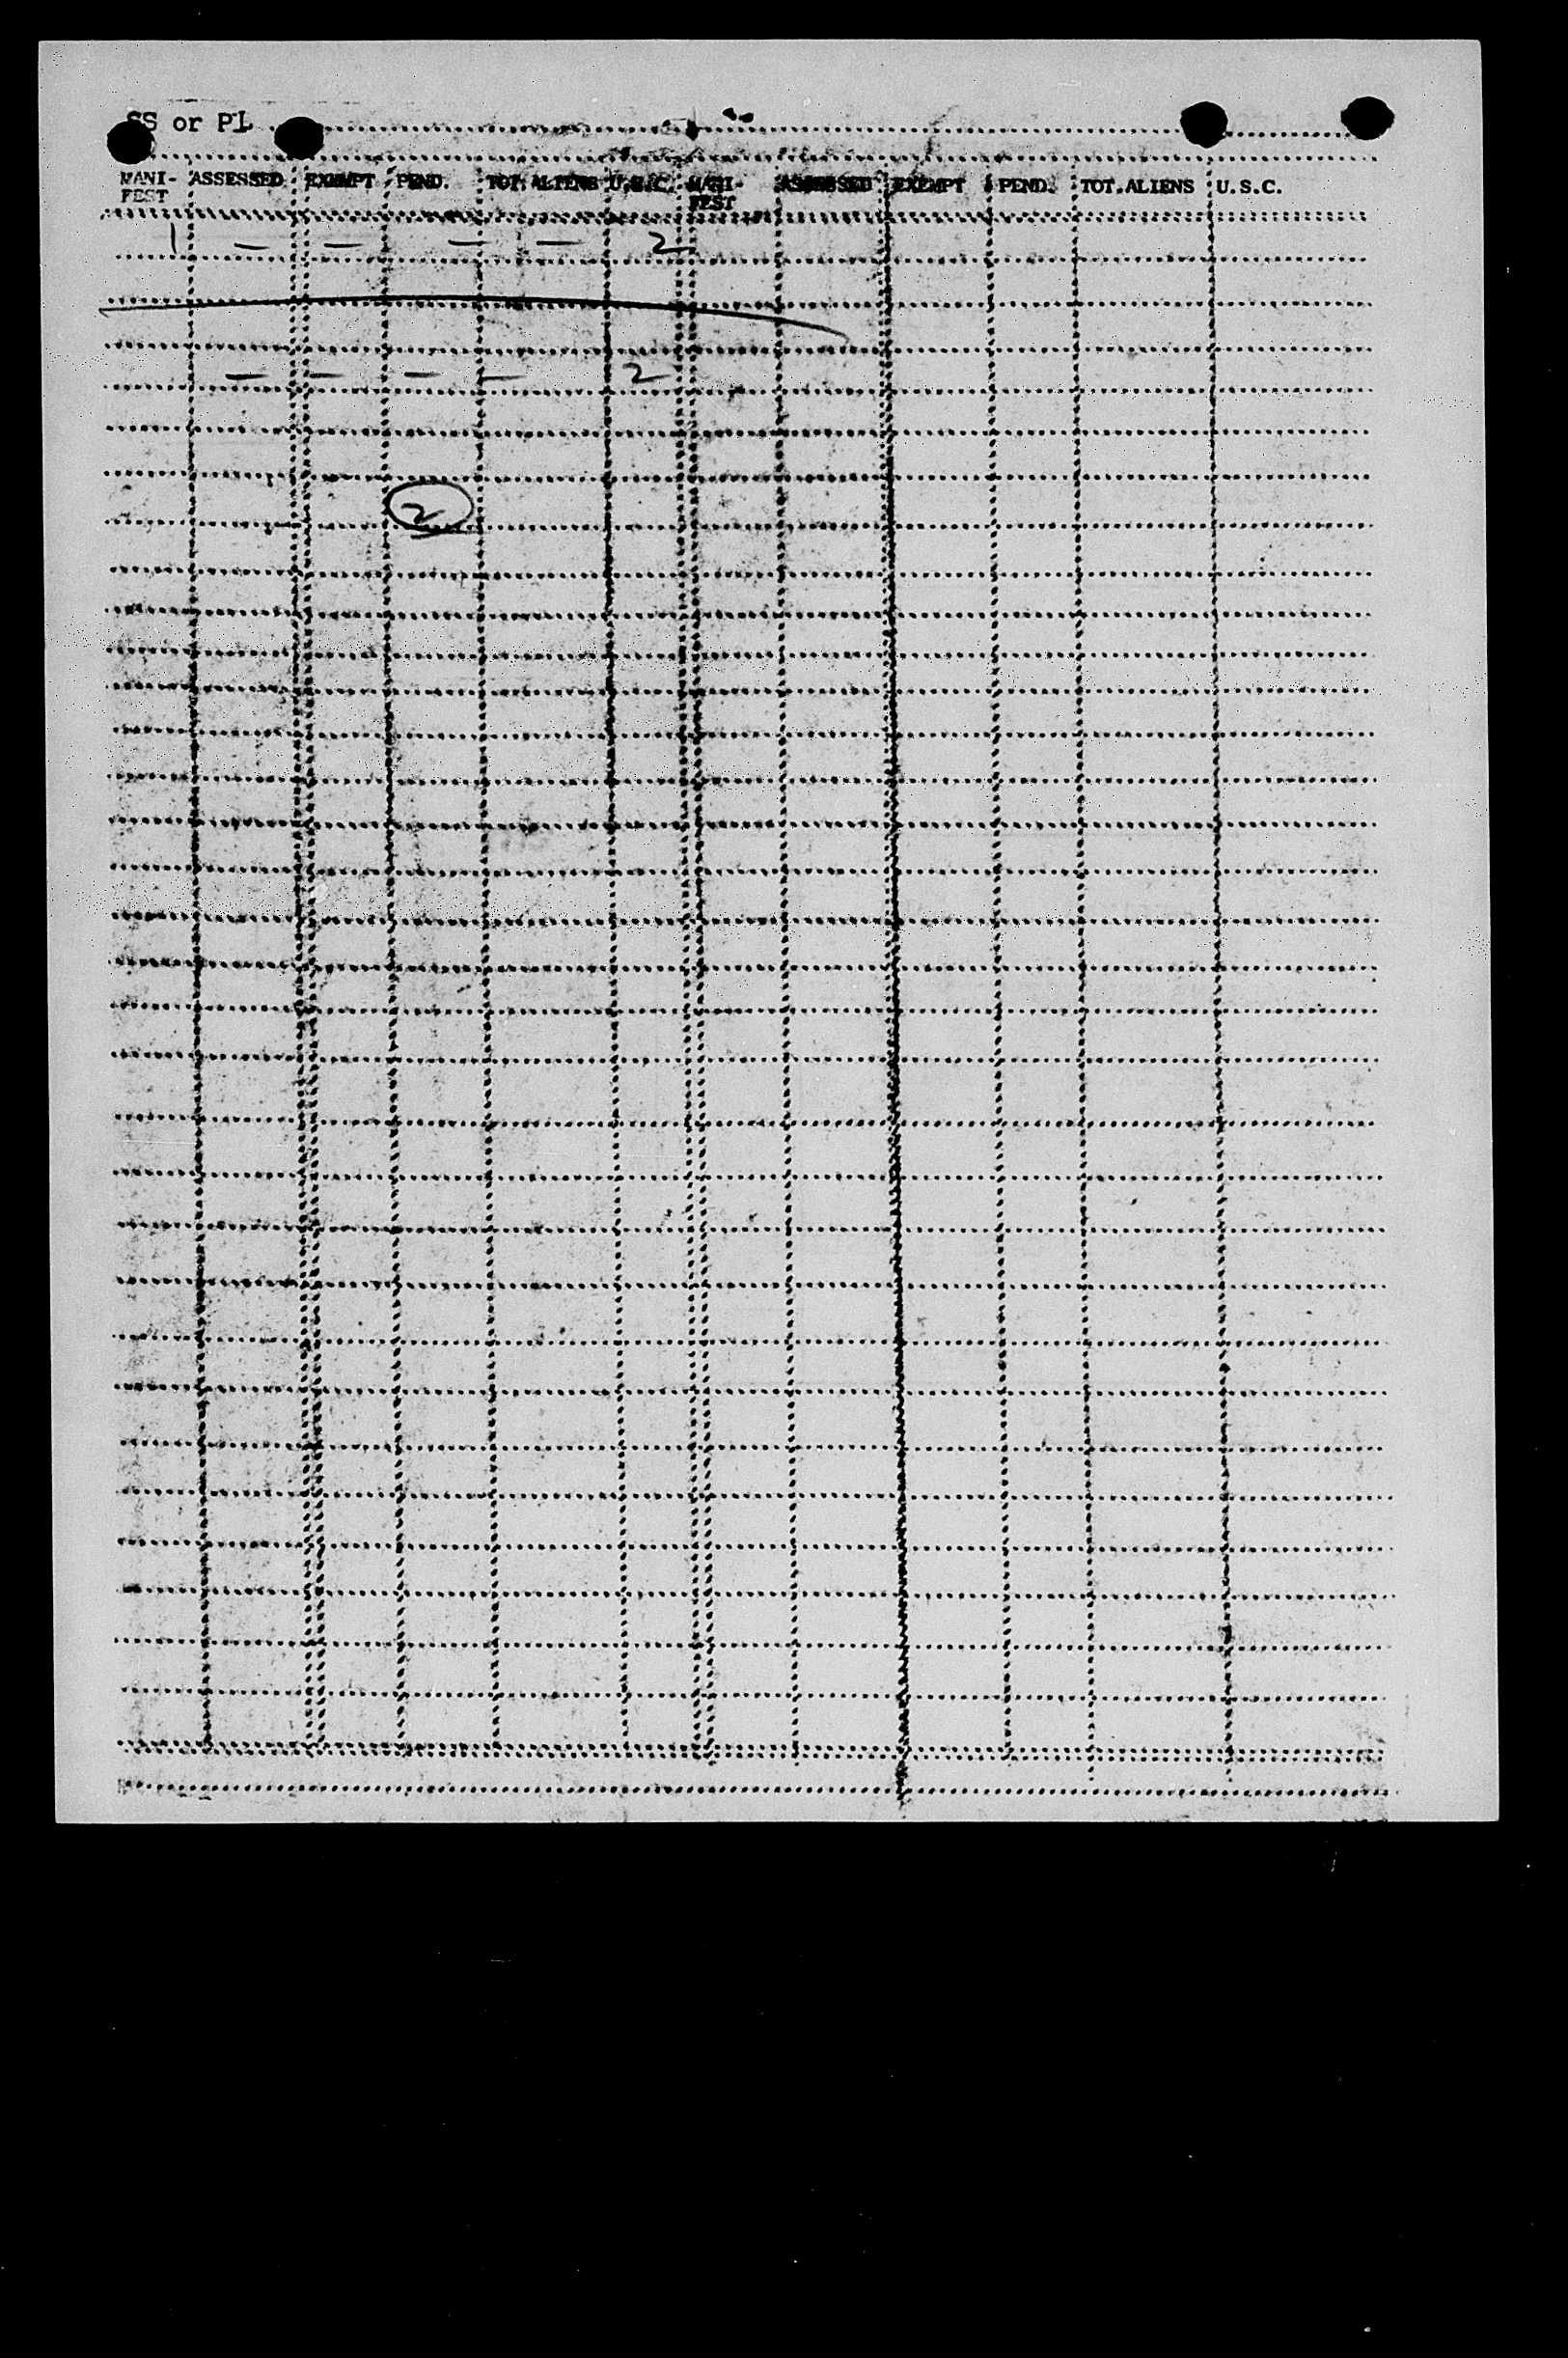 SS or PL
MANI- ASSESSED EXEMPT PEND. TOT. ALIENS U.S.C. MANI- ASSESSED EXEMPT PEND. TOT. ALIENS U.S.C.
FEST FEST
1 — — — — 2
— — — — 2
2